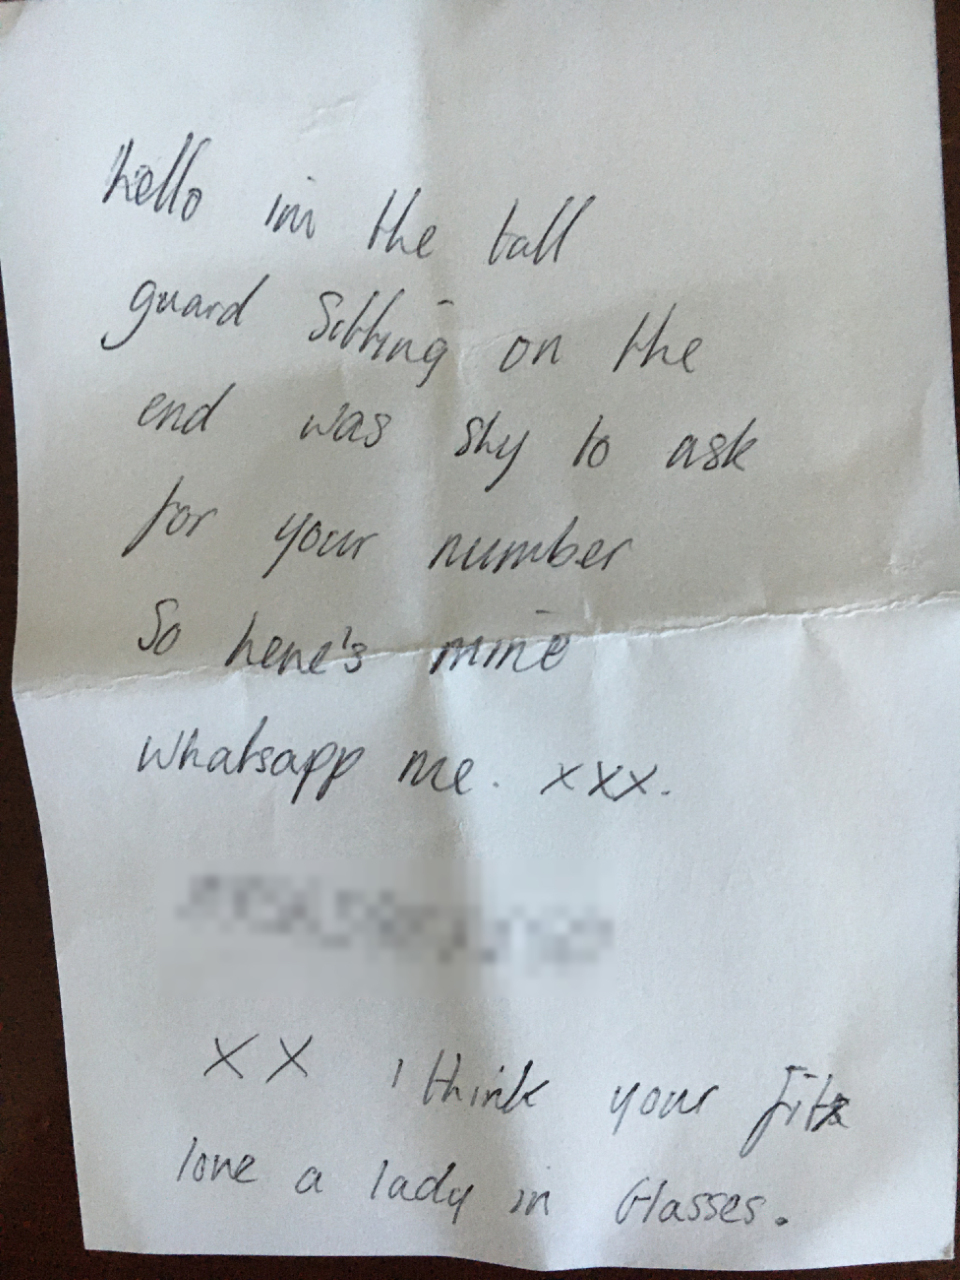 hello im the tall
guard Sitting on the
end was shy to ask
for your number
So here's mine
whatsapp me. xxx.
XX I think your fit
love a lady in Glasses.